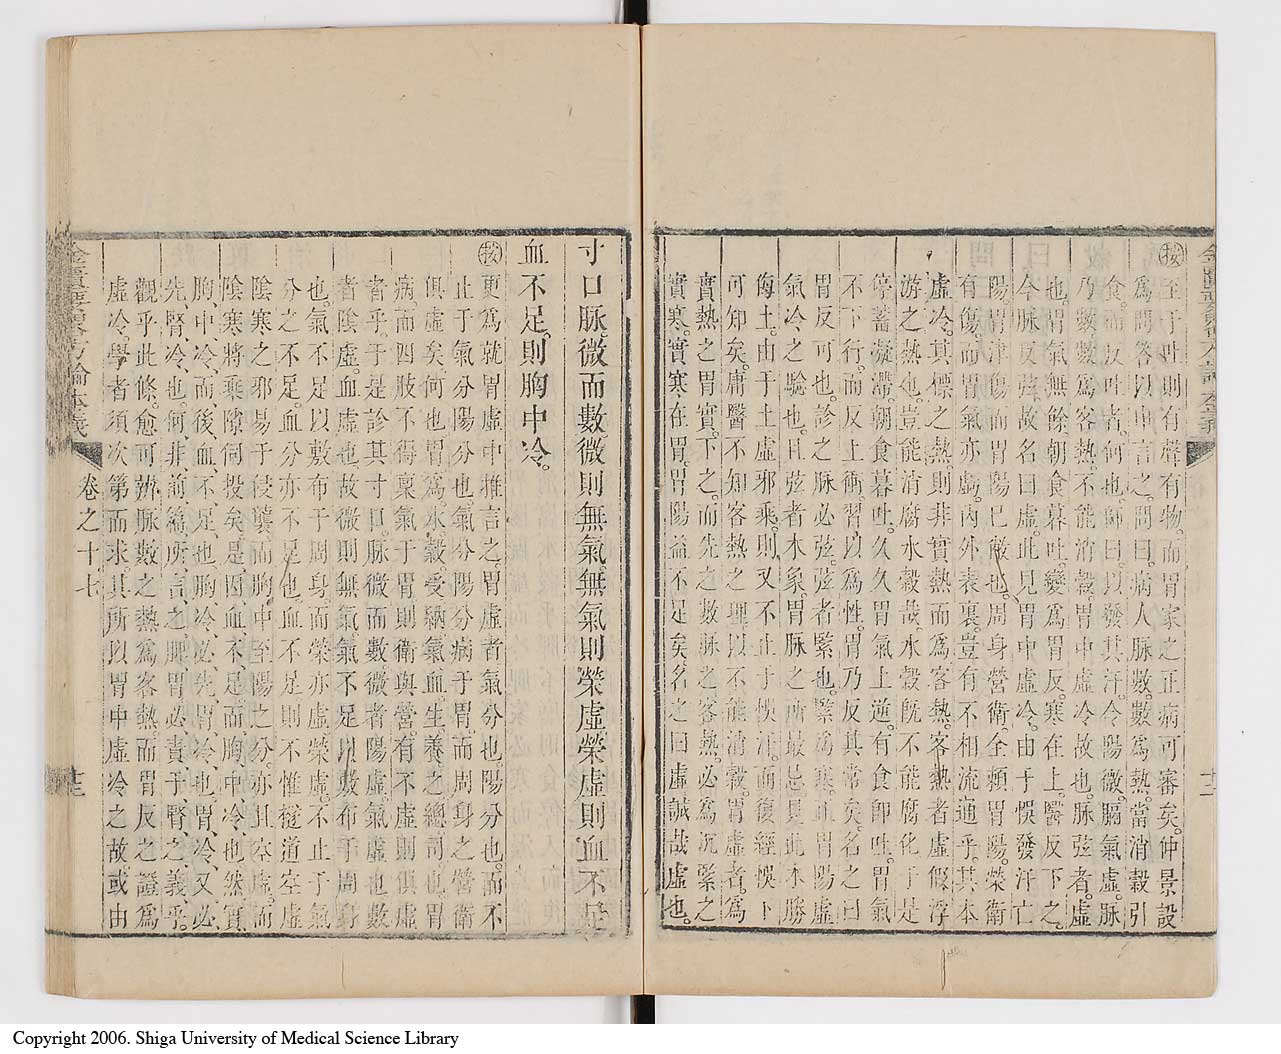 按至于吐則有聲有物。而胃家之正病可審矣。仲景設
爲問答以申言之。問曰。病人脉數。數爲熱。當消穀引
食。而反吐者。何也。師曰。以發其汗。令陽微。膈氣虛。脉
乃數。數爲客熱。不能消穀。胃中虛冷故也。脉弦者。虛
也。胃氣無餘。朝食暮吐。變爲胃反。寒在上。醫反下之。
今脉反弦。故名曰虛。此見胃中虛冷。由于悞發汗亡
陽。胃津傷而胃陽已敝也。周身營衛。全賴胃陽。榮衛
有傷。而胃氣亦虧。內外表裏。豈有不相流通乎。其本
虛冷。其標之熱。則非實熱而爲客熱。客熱者。虛假浮
游之熱也。豈能消腐水穀哉。水穀既不能腐化。于是
停蓄凝滯。朝食暮吐。久久胃氣上逆。有食即吐。胃氣
不下行。而反上衝。習以爲性。胃乃反其常矣。名之曰
胃反可也。診之脉必弦。弦者緊也。緊爲寒。且胃陽虛
氣冷之驗也。且弦者木象。胃脉之所最忌。見此木勝
侮土。由于土虛邪乘。則又不止于悞汗。而復經悞下
可知矣。庸醫不知客熱之理。以不能消穀。胃虛者。爲
實熱之胃實。下之。而先之數脉之客熱。必爲沉緊之
實寒。實寒在胃。胃陽益不足矣。名之曰虛。誠哉虛也。
金匱要畧方論本義
寸口脉微而數。微則無氣。無氣則榮虛。榮虛則血不足。
血不足。則胸中冷。
按更爲就胃虛中推言之。胃虛者。氣分也。陽分也。而不
止于氣分陽分也。氣分陽分病于胃。而周身之營衛
俱虛矣。何也。胃爲水穀受納。氣血生養之總司也。胃
病而四肢不得稟氣于胃。則衛與營。有不虛。則俱虛
者乎。于是診其寸口脉微而數。微者陽虛。氣虛也。數
者陰虛。血虛也。故微則無氣。氣不足以敷布于周身
也。氣不足以敷布于周身。而榮亦虛。榮虛。不止于氣
分之不足。血分亦不足也。血不足則不惟隧道空虛
陰寒之邪易于侵襲。而胸中至陽之分。亦且空虛。而
陰寒將乘隙伺投矣。是因血不足而胸中冷也。然實
胸中冷。而後血不足也。胸冷必先胃冷也。胃冷又必
先腎冷也。何非前篇所言之脾胃必責于腎之義乎。
觀乎此條。愈可辨脉數之熱爲客熱。而胃反之證爲
虛冷。學者須次第而求其所以胃中虛冷之故。或由
金匱要畧方論本義
卷之十七